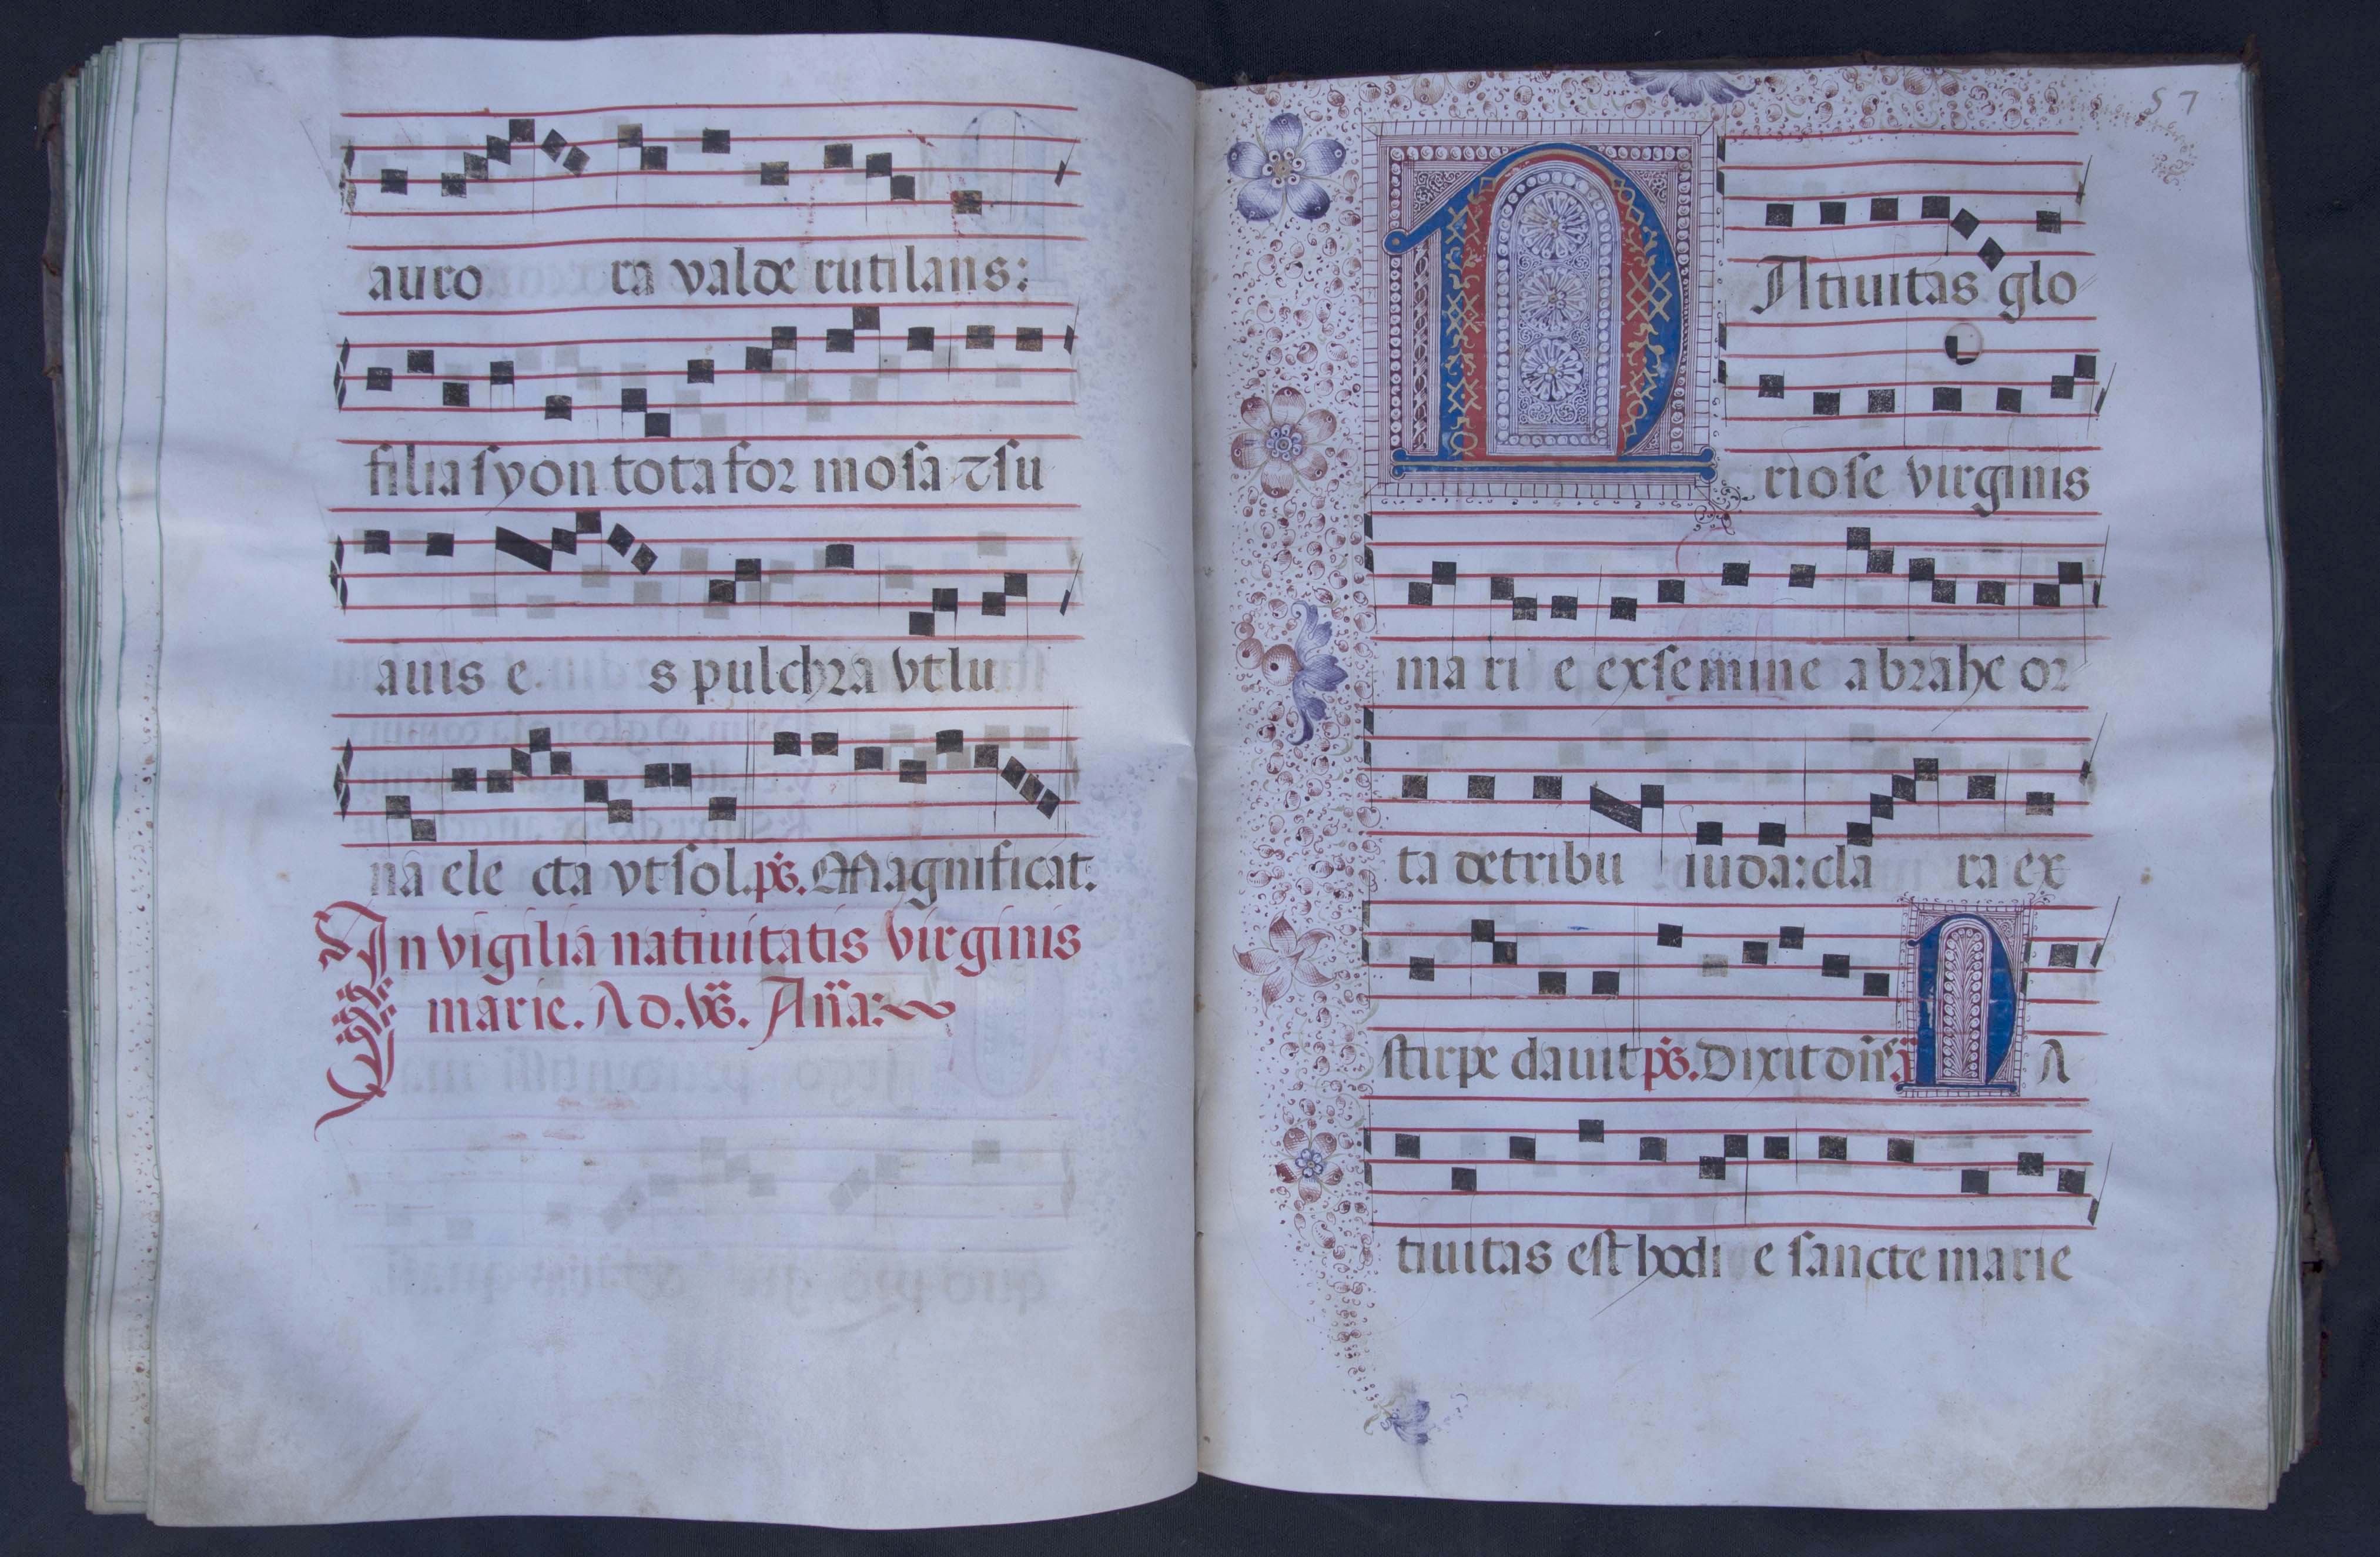 auro ra valde rutilans:
filia syon tota for mosa ⁊ su
auis e s pulchra vt lu
na ele cta vt sol. ps. Magnificat.
In vigilia natiuitatis virginis
marie. Ad. vs̃. Añа:
57
NAtiuitas glo
riose virginis
ma ri e ex semine abrahe or
ta de tribu iuda: cla ra ex
stirpe dauit ps. Dixit dñs ã NA
tiuitas est hodi e sancte marie